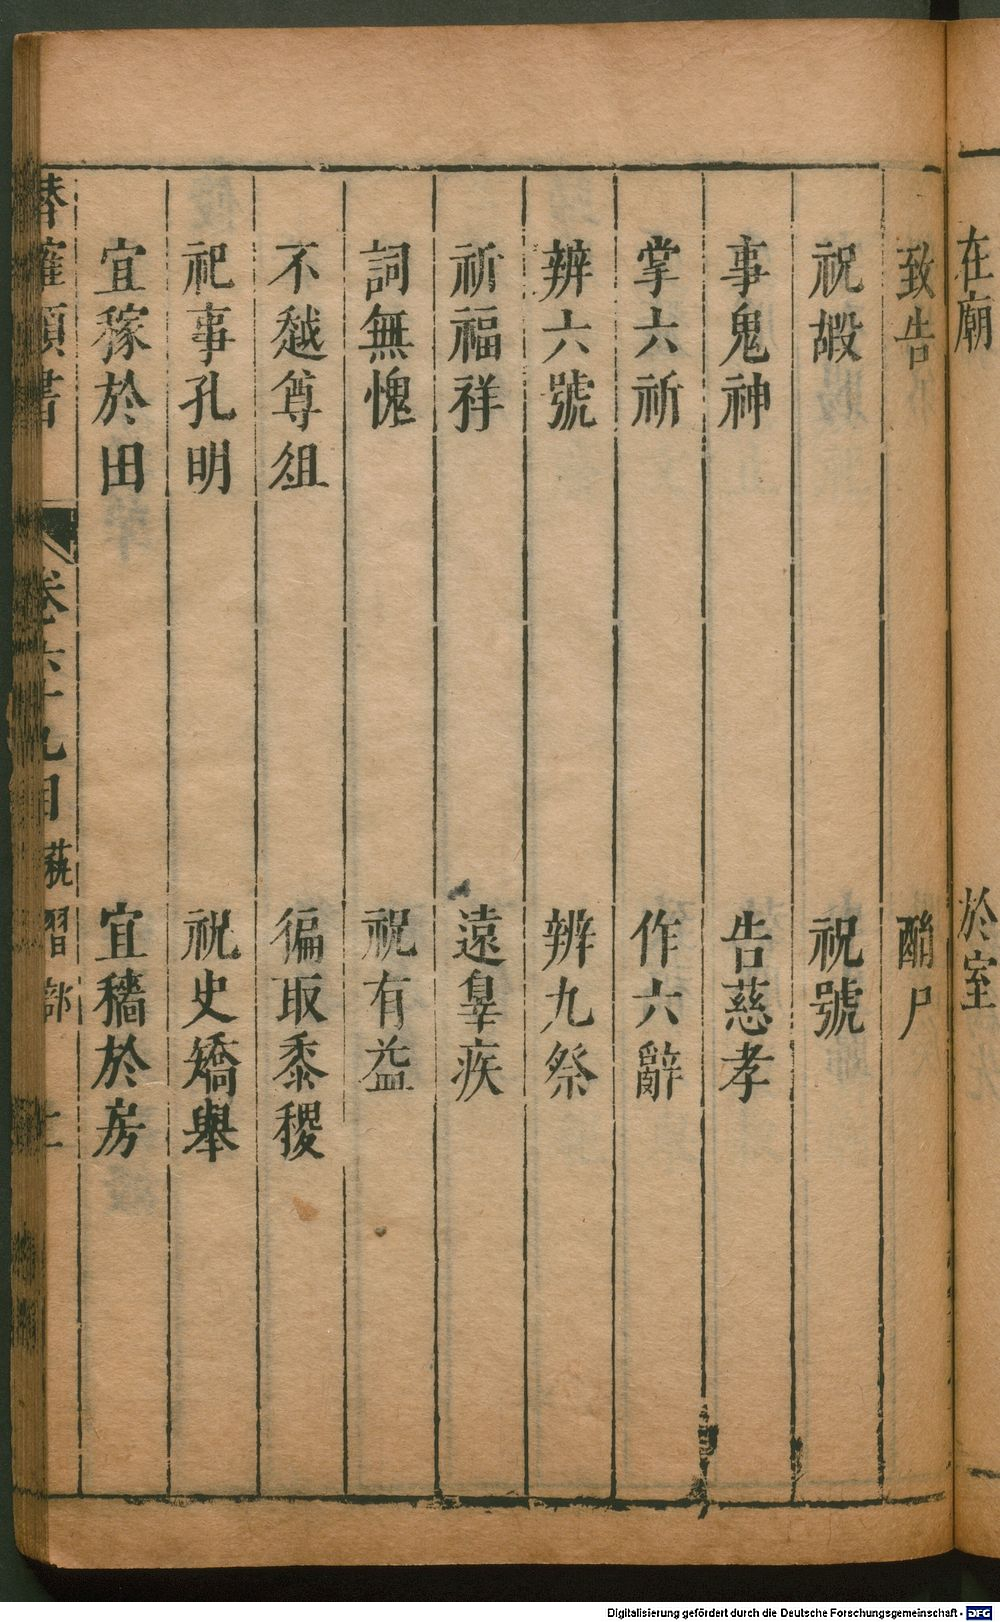 在廟 於室
致告 酳尸
祝嘏 祝號
事鬼神 告慈孝
掌六祈 作六辭
辨六號 辨九祭
祈福祥 遠辠疾
詞無愧 祝有益
不越尊俎 徧取黍稷
祀事孔明 祝史矯舉
宜稼於田 宜穡於房
潛確類書 卷六十九目 藝習部 上
Digitalisierung gefördert durch die Deutsche Forschungsgemeinschaft - DFG